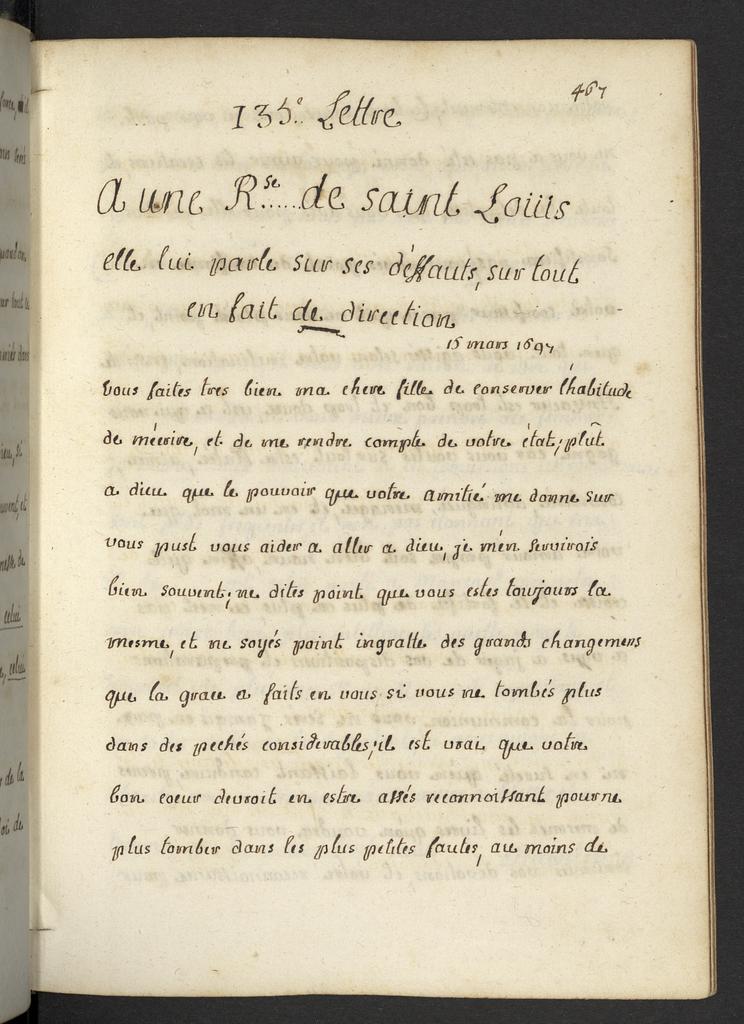 467
135.e Lettre
A une R.se..... de saint Loüis
elle lui parle sur ses déffauts, sur tout
en fait de direction
15 mars 1697
Vous faites tres bien ma chere fille de conserver l'habitude
de m'écrire, et de me rendre compte de votre état; plût
a dieu que le pouvoir que votre amitié me donne sur
vous pust vous aider a aller a dieu, je m'en servirois
bien souvent; ne dites point que vous estes toujours la
mesme, et ne soyés point ingratte des grands changemens
que la grace a faits en vous si vous ne tombés plus
dans des pechés considerables; il est vrai que votre
bon coeur devroit en estre assés reconnoissant pour ne
plus tomber dans les plus petites fautes, au moins de